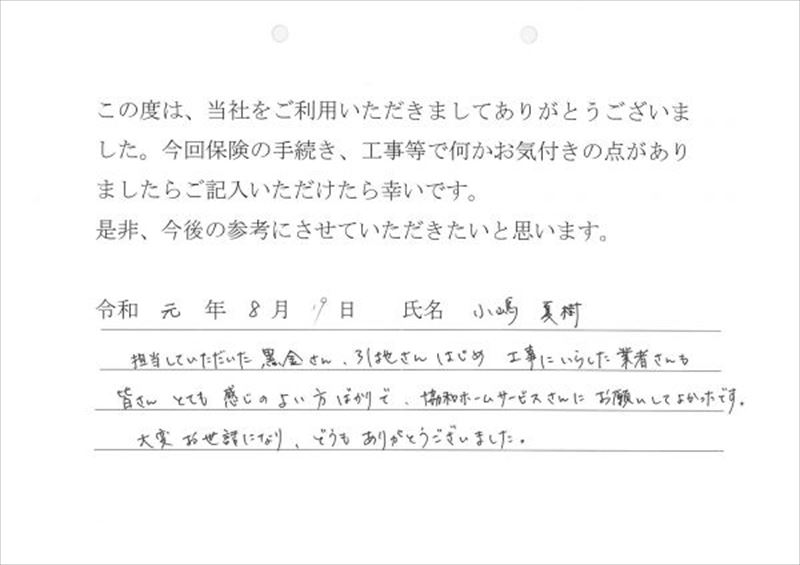 この度は、当社をご利用いただきましてありがとうございま
した。今回保険の手続き、工事等で何かお気付きの点があり
ましたらご記入いただけたら幸いです。
是非、今後の参考にさせていただきたいと思います。
令和 元 年 8 月 19 日 氏名 小嶋 夏樹
担当していただいた黒金さん、引地さんはじめ 工事にいらした業者さんも
皆さん とても 感じのよい方ばかりで、協和ホームサービスさんに お願いしてよかったです。
大変 お世話になり、どうも ありがとうございました。